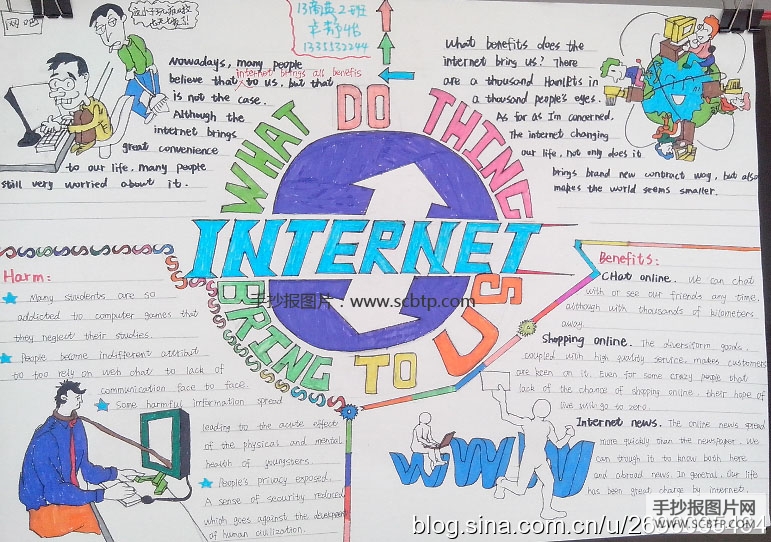 网吧
13商英2班
1335532244
Nowadays, many people
believe that internet brings all benefis to us, but that
is not the case.
Although the
internet brings
great convenience
to our life, many people
still very worried about it.
WHAT DO THING
INTERNET
BRING TO US
What benefits does the
internet bring us? There
are a thousand Hamlets in
a thousand people's eyes.
As far as I'm concerned,
The internet changing
our life, not only does it
brings brand new contract way, but also
makes the world seems smaller.
手抄报图片:www.scbtp.com
Harm:
Many students are so
addicted to computer games that
they neglect their studies.
People become indifferent attribut
to too rely on web chat to lack of
communication face to face.
Some harmful imformation spread
leading to the acute effect
of the physical and mental
health of youngsters.
People's privacy exposed.
A sense of security reduced
which goes against the development
of human civilization.
Benefits:
Chat online. We can chat
with or see our friends any time,
although with thousands of kilometers
away.
Shopping online. The diversiform goods,
coupled with high quality service, makes customers
are keen on it. Even for some crazy people that
lack of the chance of shopping online, their hope of
live will go to zero.
Internet news. The online news spread
more quickly than the newspaper. We
can trough it to know both here
and abroad news. In general, Our life
has been great charge by internet.
WWW
手抄报图片网
WWW.SCBTP.COM